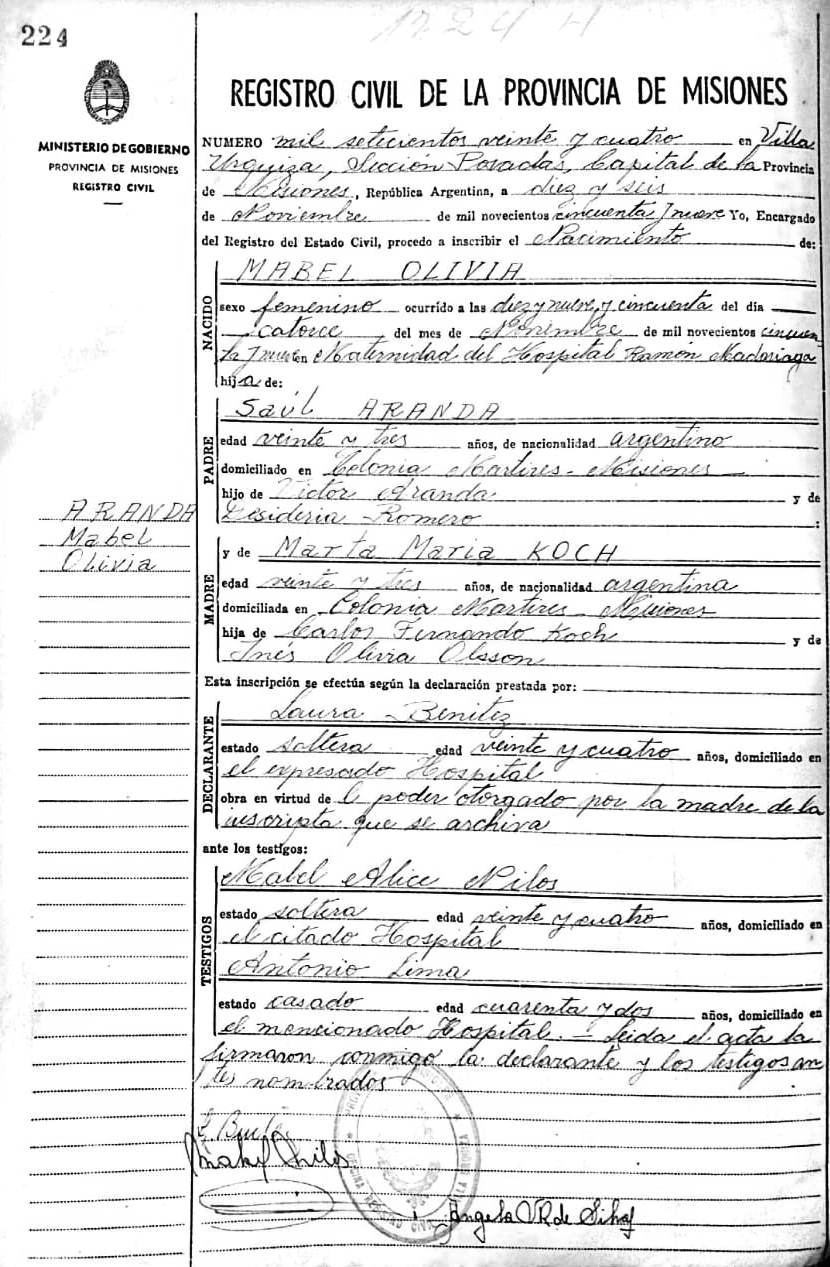 224
1724 H
MINISTERIO DE GOBIERNO
PROVINCIA DE MISIONES
REGISTRO CIVIL
REGISTRO CIVIL DE LA PROVINCIA DE MISIONES
NUMERO mil setecientos veinte y cuatro en Villa
Urquiza, Sección Posadas, Capital de la Provincia
de Misiones, República Argentina, a diez y seis
de Noviembre de mil novecientos cincuenta y nueve Yo, Encargado
del Registro del Estado Civil, procedo a inscribir el Nacimiento de:
NACIDO
MABEL OLIVIA
sexo femenino ocurrido a las diez y nueve y cincuenta del día
catorce del mes de Noviembre de mil novecientos cincuen
ta y nueve en Maternidad del Hospital Ramón Madariaga
hija de:
PADRE
Saúl ARANDA
edad veinte y tres años, de nacionalidad argentino
domiciliado en Colonia Martires - Misiones
hijo de Victor Aranda y de
Desideria Romero :
ARANDA
Mabel
Olivia
MADRE
y de Marta Maria KOCH
edad veinte y tres años, de nacionalidad argentina
domiciliada en Colonia Martires - Misiones
hija de Carlos Fernando Koch y de
Inés Olivia Olsson
Esta inscripción se efectúa según la declaración prestada por:
DECLARANTE
Laura Benitez
estado soltera edad veinte y cuatro años, domiciliado en
el expresado Hospital
obra en virtud de l poder otorgado por la madre de la
inscripta que se archiva
ante los testigos:
TESTIGOS
Mabel Alice Nilos
estado soltera edad veinte y cuatro años, domiciliado en
el citado Hospital
Antonio Lima
estado casado edad cuarenta y dos años, domiciliado en
el mencionado Hospital. - Leida el acta la
firmaron conmigo la declarante y los testigos an
tes nombrados
OFICINA REGISTRO CIVIL VILLA URQUIZA
Angela V R de